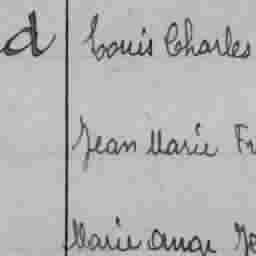 d Louis Charles
Jean Marie Fr
Marie Ange Je